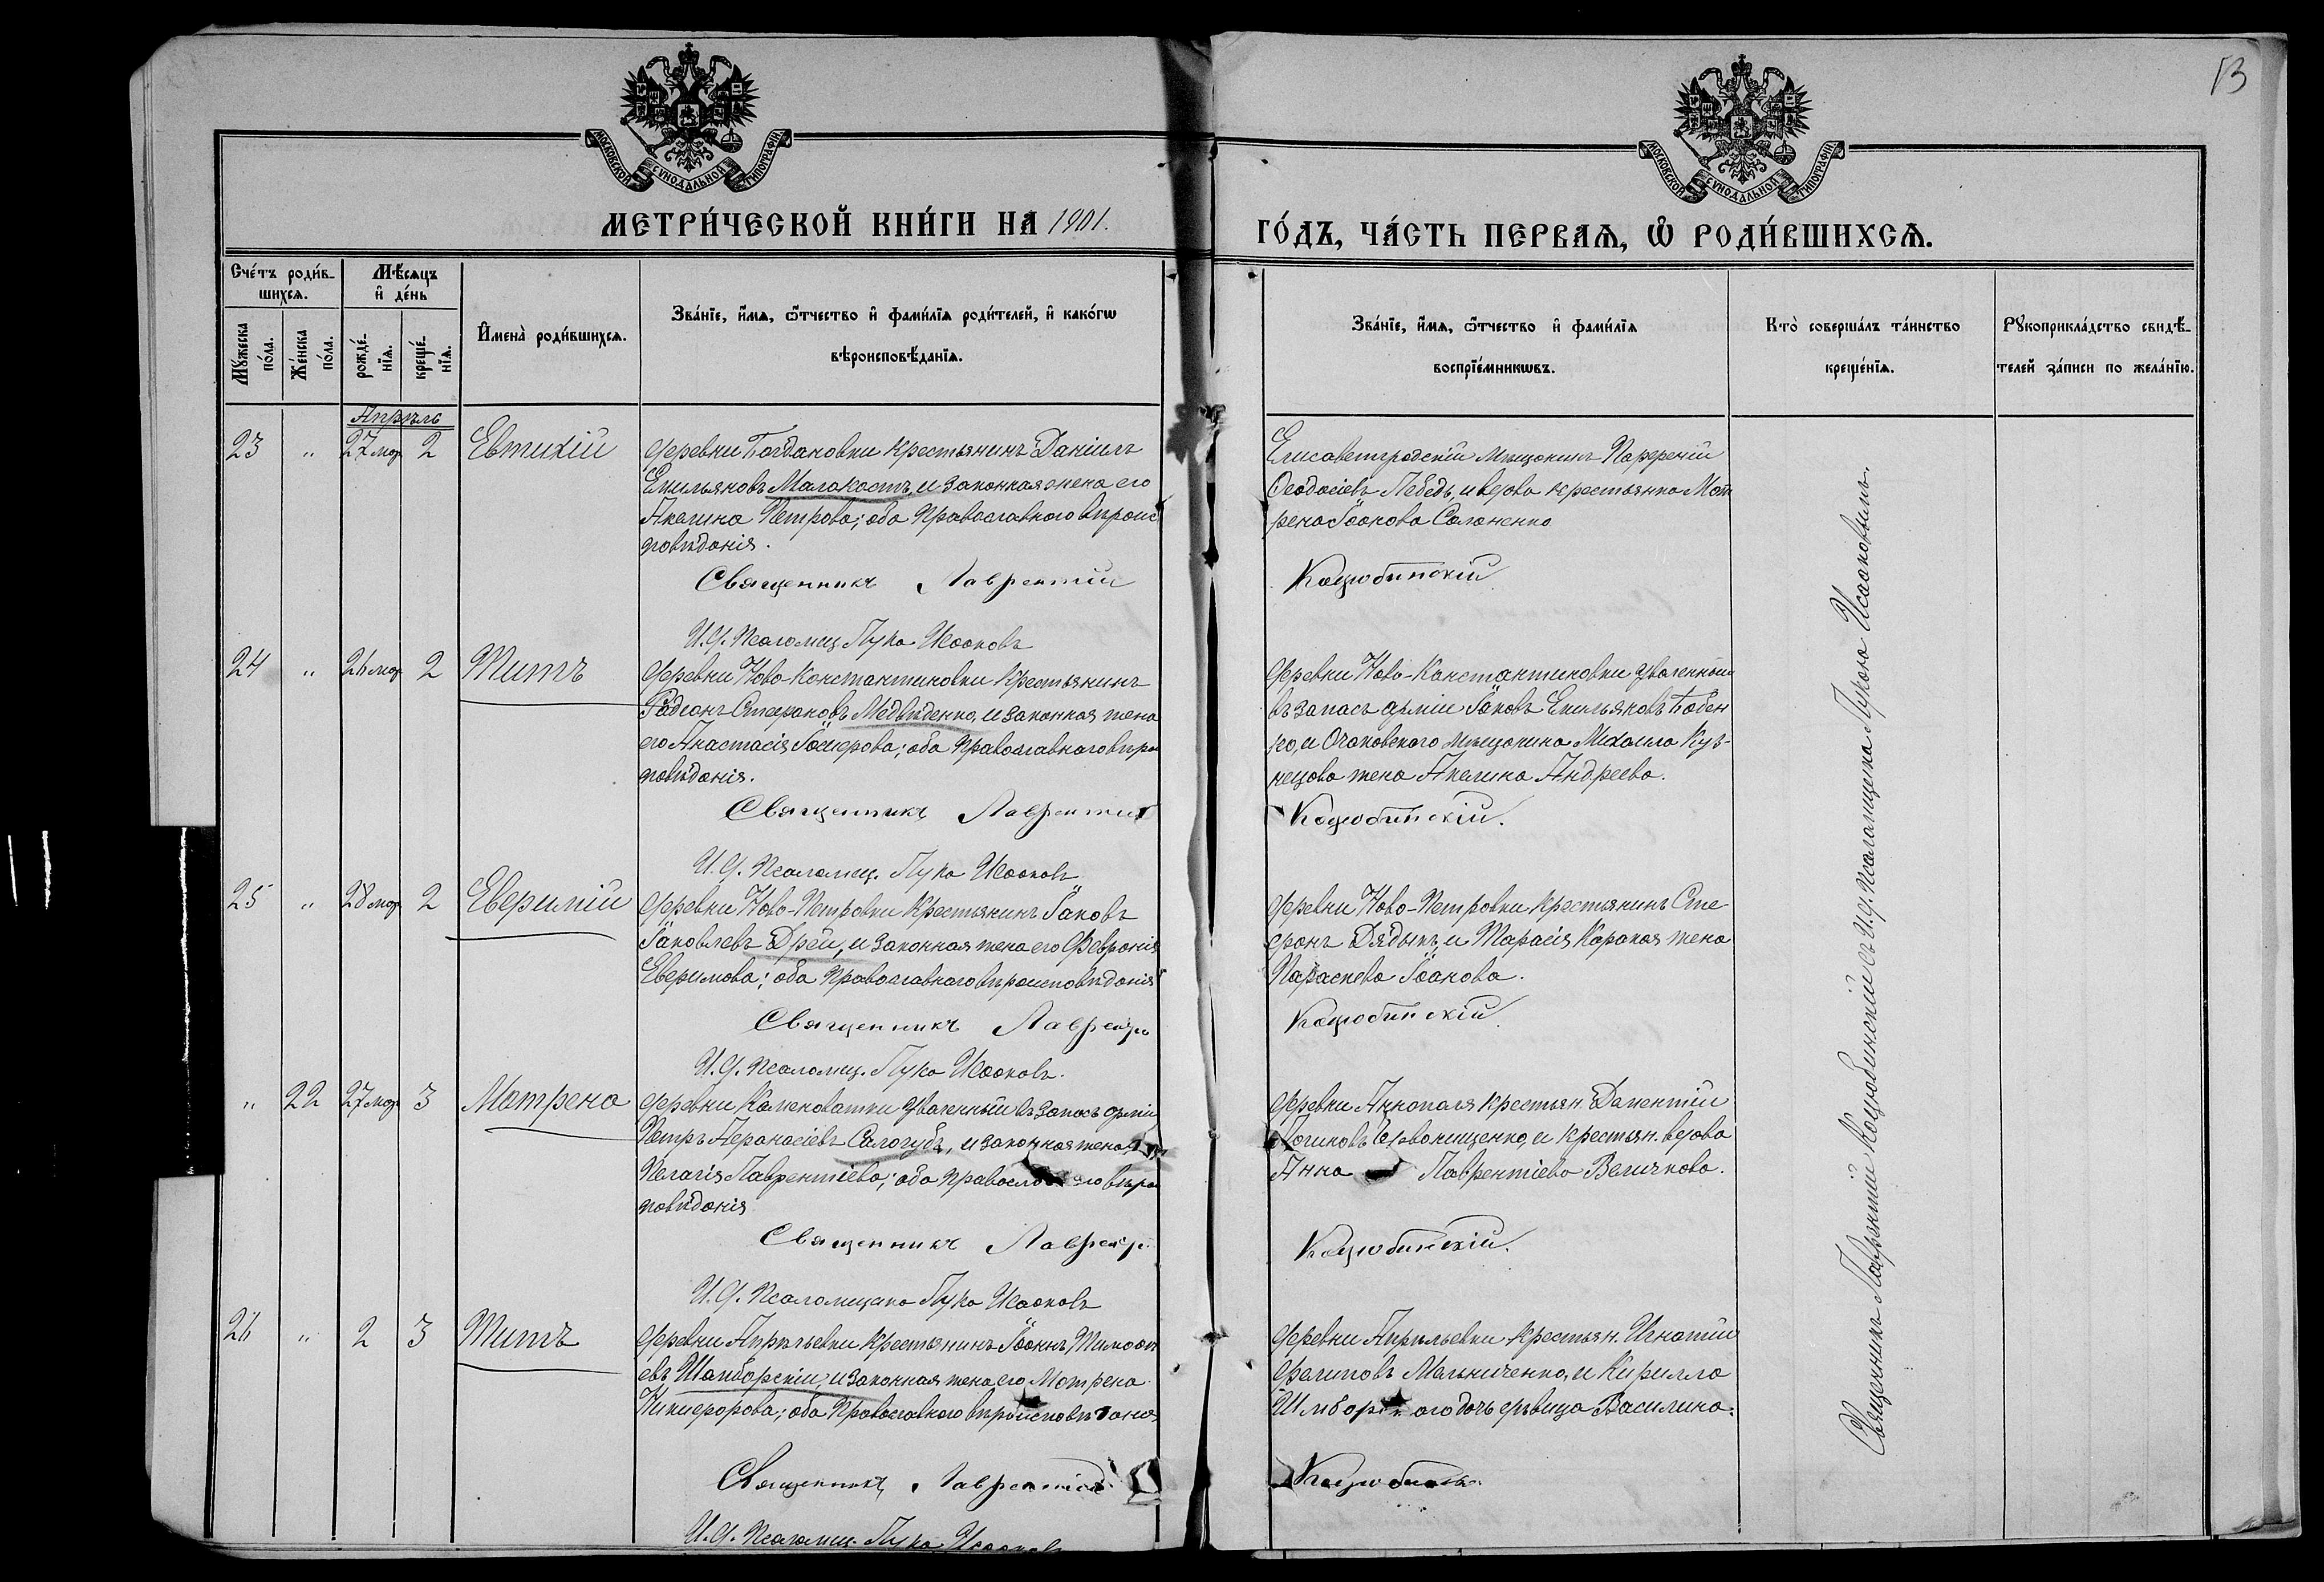 13
МОСКОВСКОЙ СУНОДАЛЬНОЙ ТИПОГРАФІИ
МОСКОВСКОЙ СУНОДАЛЬНОЙ ТИПОГРАФІИ
МЕТРИ́ЧЕСКОЙ КНИ́ГИ НА 1901.
ГО́ДЪ, ЧА́СТЬ ПЕРВАѦ, Ѡ РОДИ́ВШИХСѦ.
Сче́тъ роди́в-
шихсѧ.
Мꙋжеска
по́ла.
Же́нска
по́ла.
Мѣ́сѧцъ
и҆ де́нь
рожде́-
нїѧ.
креще́-
нїѧ.
И҆мена̀ роди́вшихсѧ.
Зва́нїе, и҆́мѧ, ѻ҆́тчество и҆ фами́лїѧ роди́телей, и҆ како́гѡ
вѣроисповѣ́данїѧ.
Зва́нїе, и҆́мѧ, ѻ҆́тчество и҆ фами́лїѧ
воспрїе́мникѡвъ.
Кто̀ соверша́лъ та́инство
креще́нїѧ.
Рꙋкоприкла́дство свидѣ́-
телей за́писи по жела́нїю.
Апрѣль
23 " 27 мар 2 Евтихій
деревни Богдановки крестьянинъ Даніилъ
Емильяновъ Малакостъ, и законная жена его
Акелина Петрова; оба православнаго вѣроис
повѣданія.
Священникъ Лаврентій
И. д. Псаломщ. Лука Исааковъ
Елисаветградскій мѣщанинъ Парфеній
Феодосіевъ Лебедь, и вдова крестьянка Мат
рена Іоанова Солоненко
Коцюбинскій
24 " 26 мар 2 Титъ
деревни Ново-Константиновки крестьянинъ
Радіонъ Стефановъ Медвѣденко, и законная жена
его Анастасія Іосифова; оба православнаго вѣрои
повѣданія.
Священникъ Лаврентій
И. д. Псаломщ. Лука Исааковъ
деревни Ново-Константиновки уволенный
въ запасъ арміи Іаковъ Емильяновъ Бабен
ко, и Очаковскаго мѣщанина Михаила Куз-
нецова жена Акелина Андреева.
Коцюбинскій.
25 " 28 мар 2 Евфимій
деревни Ново-Петровки крестьянинъ Іаковъ
Іаковлевъ Дрей, и законная жена его Февронія
Евфимова; оба православнаго вѣроисповѣданія
Священникъ Лаврентій
И. д. Псаломщ. Лука Исааковъ.
деревни Ново-Петровки крестьянинъ Сте
фанъ Дядыкъ, и Тарасія Каракая жена
Параскева Іоанова.
Коцюбинскій
" 22 27 мар 3 Матрена
деревни Каменоватки уволенный въ запасъ арміи
Петръ Афанасіевъ Сологубъ, и законная жена
Пелагія Лаврентіева; оба православнаго вѣрои
повѣданія
Священникъ Лаврентій
И. д. Псаломщика Лука Исааковъ
деревни Аннополя крестьян. Даментій
крестьян. вдова
Анна Лаврентіева Величкова.
Коцюбинскій.
26 " 2 3 Титъ
деревни Апрѣльевки крестьянинъ Іоаннъ Тимофѣ
евъ Шамборскій, и законная жена его Матрена
Никифорова; оба православнаго вѣроисповѣданія
Священникъ Лаврентій
И. д. Псаломщ. Лука Исааковъ
деревни Апрѣльевки крестьян. Игнатій
Филиповъ Мельниченко, и Кирилла
дочь дѣвица Василина.
Священникъ Лаврентій Коцюбинскій съ И. д. Псаломщика Лукою Исааковымъ.